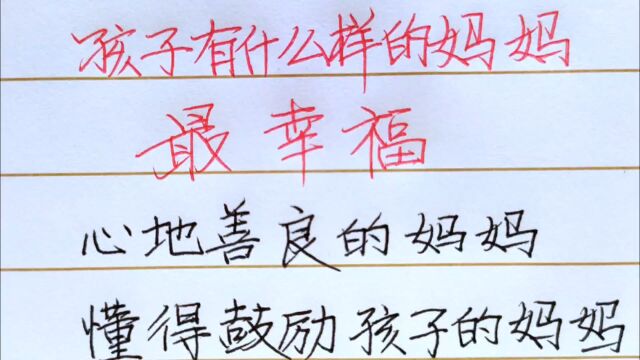 孩子有什么样的妈妈
最幸福
心地善良的妈妈
懂得鼓励孩子的妈妈